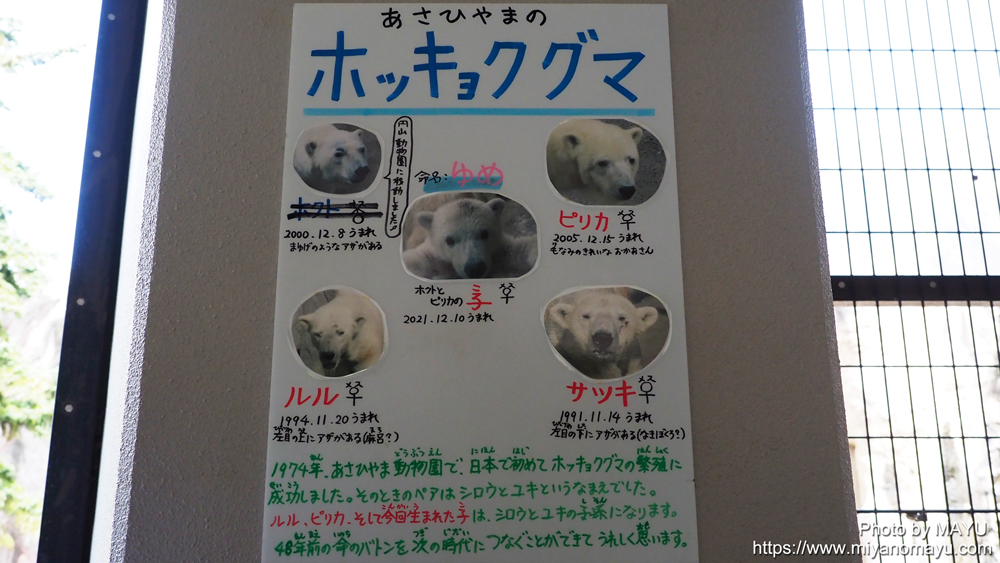 あさひやまの
ホッキョクグマ
円山動物園に移動しました!!
ホクト オス
2000.12.8 うまれ
まゆげのようなアザがある
命名:ゆめ
ホクトと
ピリカの子 メス
2021.12.10 うまれ
ピリカ メス
2005.12.15 うまれ
毛なみのきれいな おかあさん
ルル メス
1994.11.20 うまれ
左目の上にアザがある(麻呂?)
サツキ メス
1991.11.14 うまれ
左目の下にアザがある(なきぼくろ?)
1974年、あさひやま動物園で、日本で初めてホッキョクグマの繁殖に
成功しました。そのときのペアはシロウとユキというなまえでした。
ルル、ピリカ、そして今回生まれた子は、シロウとユキの子孫になります。
48年前の命のバトンを次の時代につなぐことができてうれしく思います。
Photo by MAYU
https://www.miyanomayu.com/